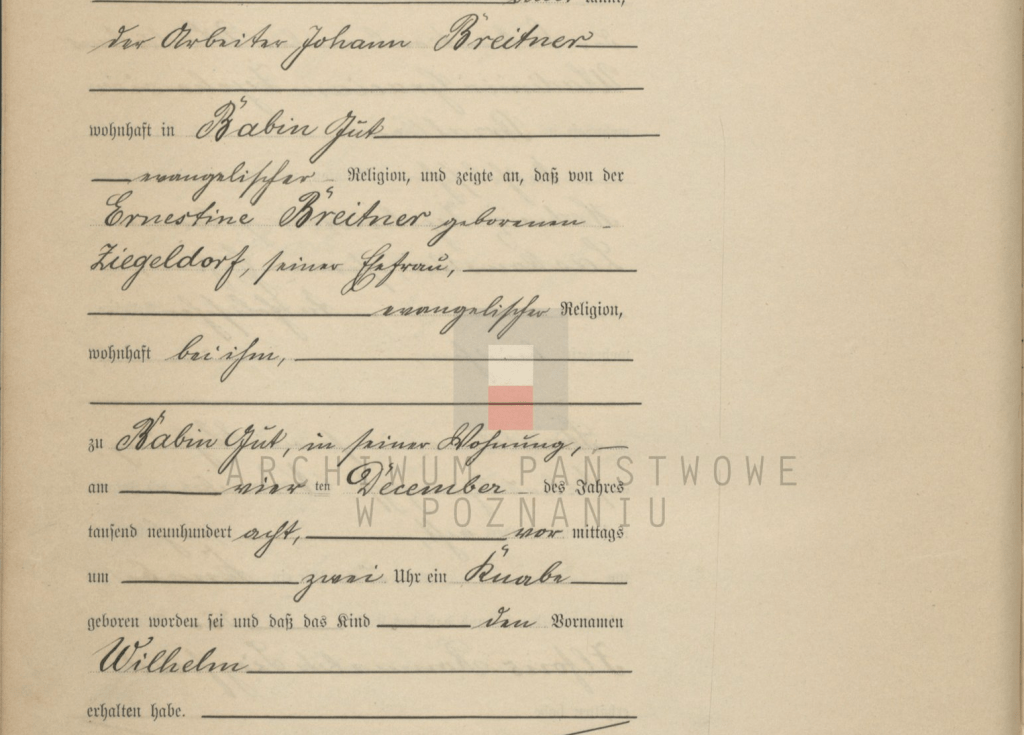 der Arbeiter Johann Breitner
wohnhaft in Babin Gut
evangelischer Religion, und zeigte an, daß von der
Ernestine Breitner geborenen
Ziegeldorf, seiner Ehefrau,
evangelischer Religion,
wohnhaft bei ihm,
zu Babin Gut, in seiner Wohnung,
am vier ten December des Jahres
tausend neunhundert acht, vor mittags
um zwei Uhr ein Knabe
geboren worden sei und daß das Kind den Vornamen
Wilhelm
erhalten habe.
ARCHIWUM PAŃSTWOWE
W POZNANIU